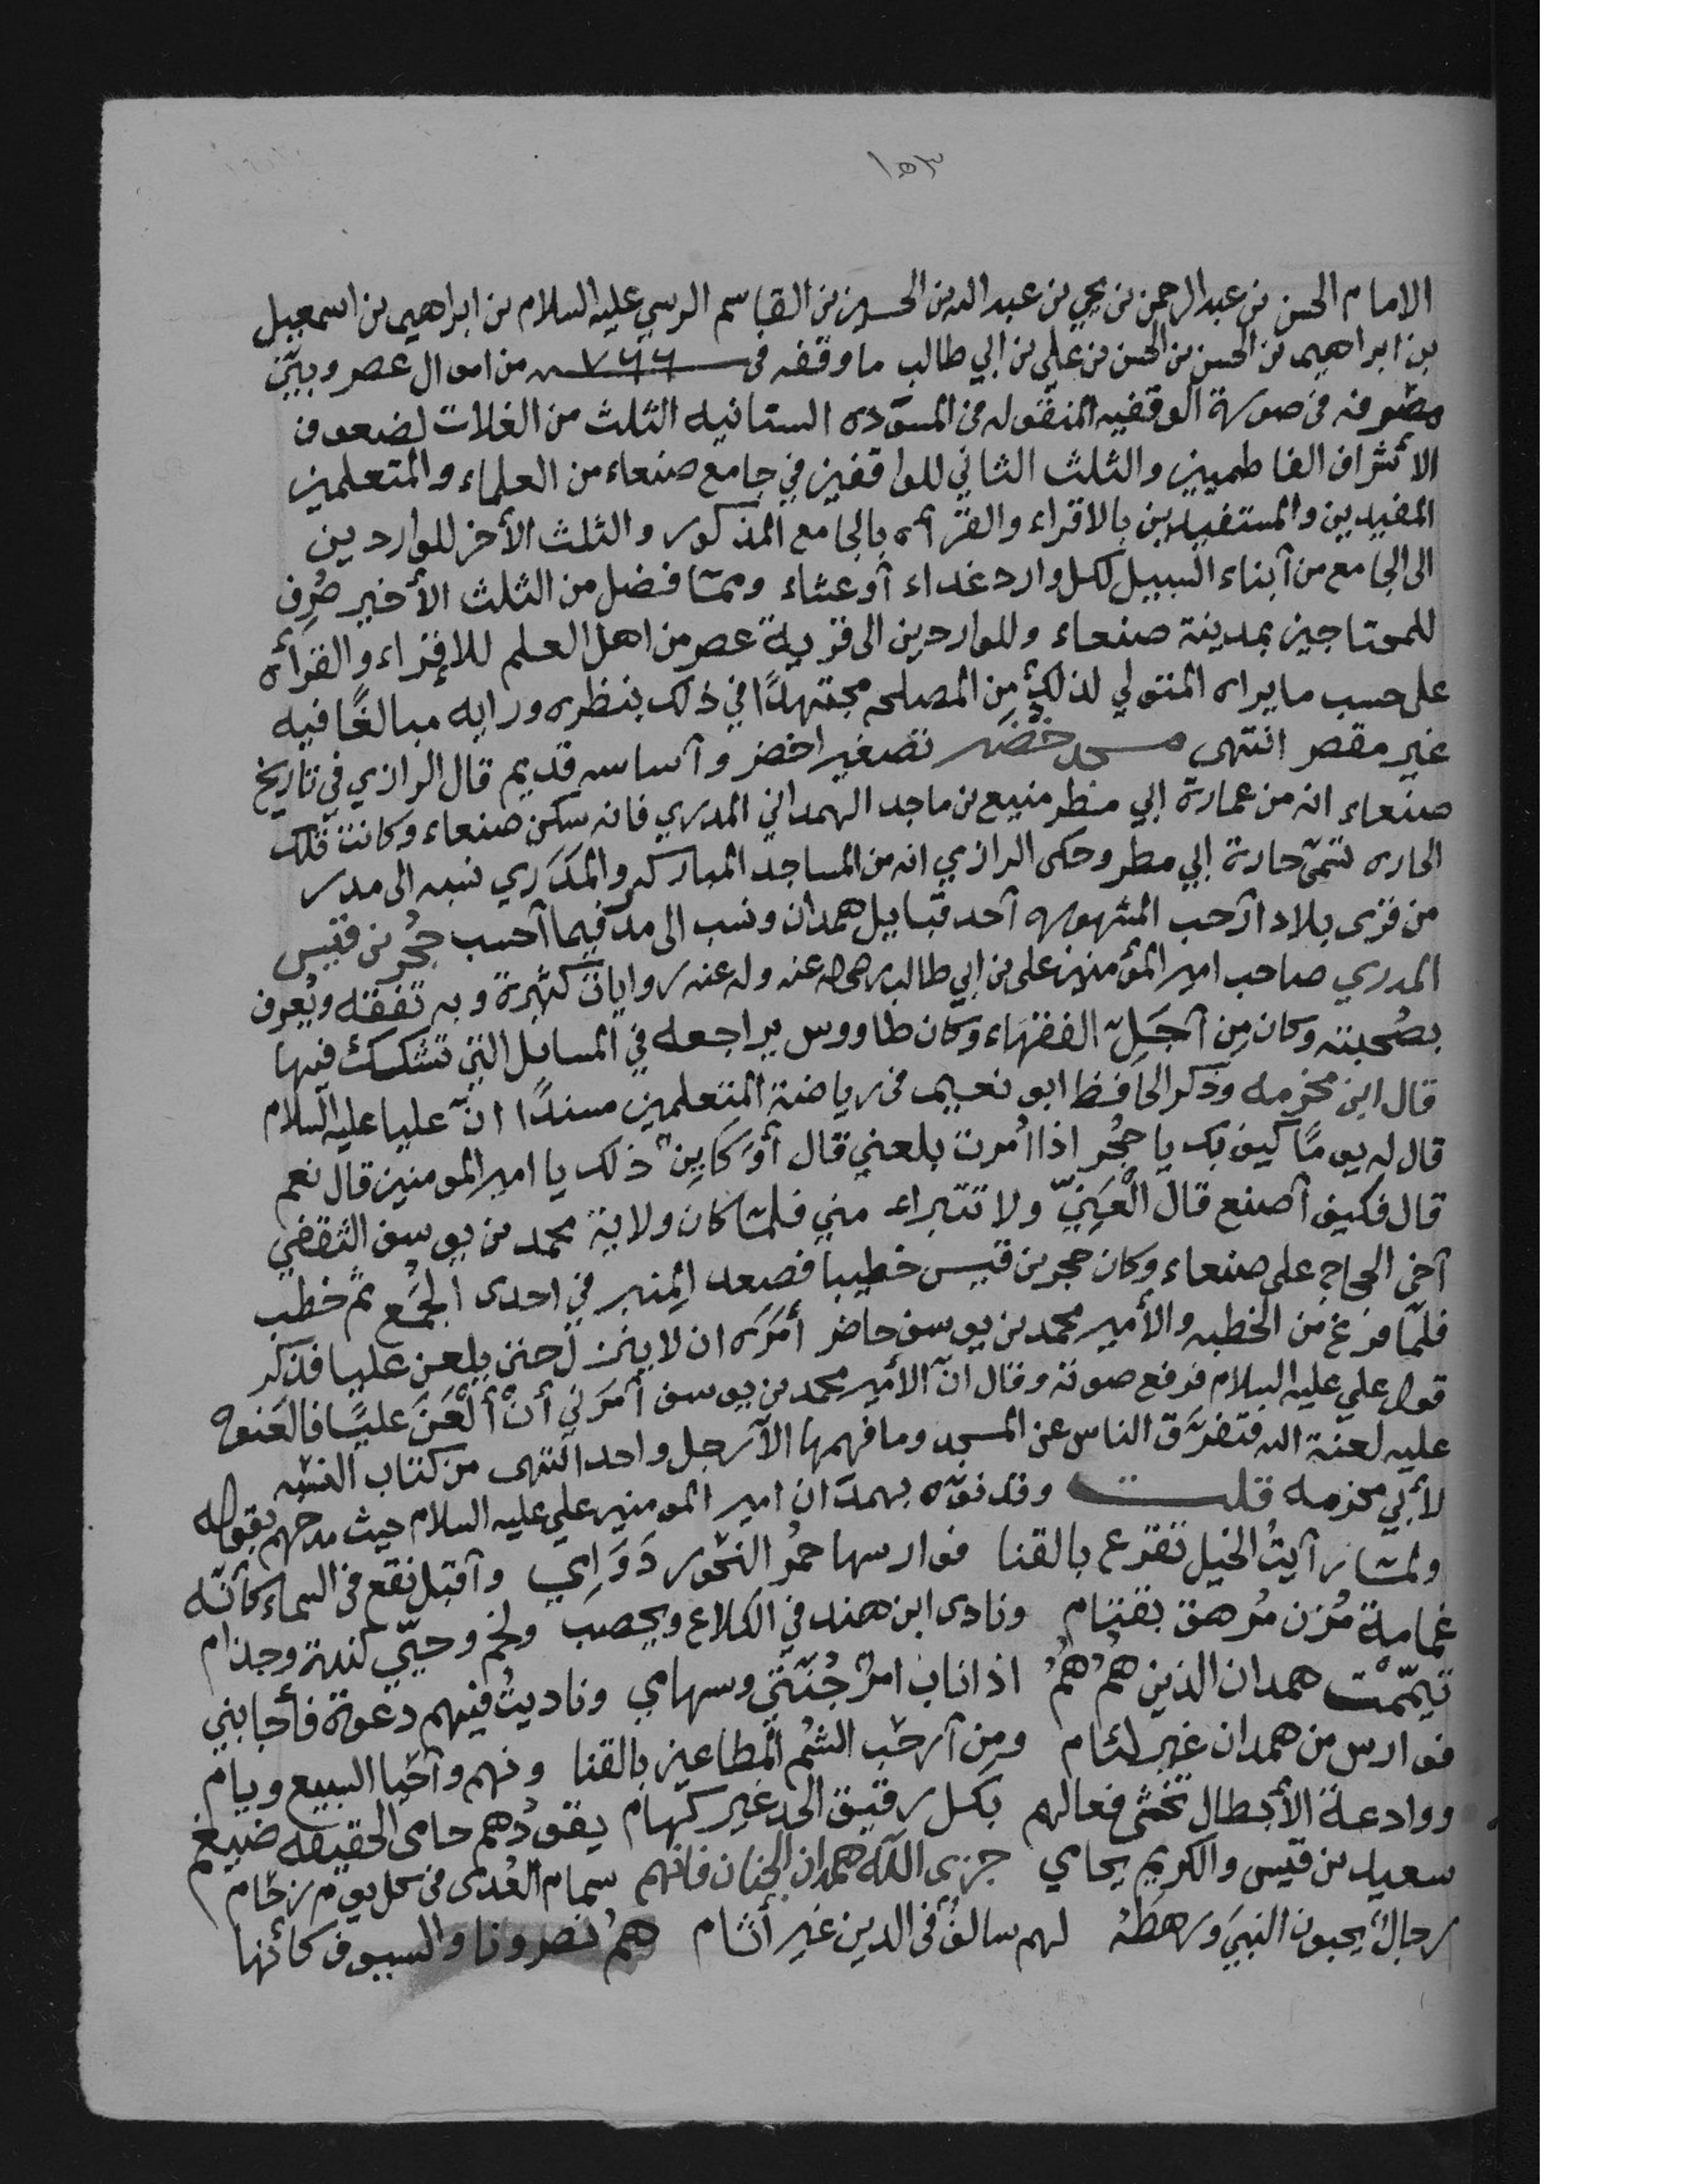 ١٥٣
الامام الحسن بن عبد الرحمن بن يحيى بن عبد الله بن الحسين بن القاسم الرسي عليه السلام بن ابراهيم بن اسمعيل
بن ابراهيم بن الحسن بن الحسن بن علي بن ابي طالب ما وقفه في من اموال عصر وبيّن
مصرفه في صورة الوقفيه المنقوله في المسوّده السنانيه الثلث من الغلات لضعوف
الأشراف الفاطميين والثلث الثاني للواقفين في جامع صنعاء من العلماء والمتعلمين
المفيدين والمستفيدين بالاقراء والقرأه بالجامع المذكور والثلث الأخر للواردين
الى الجامع من أبناء السبيل لكل وارد غداء أو عشاء وممّا فضل من الثلث الأخير صُرِف
للمحتاجين بمدينة صنعاء وللواردين الى قرية عصر من اهل العلم للإقراء والقرأه
على حسب ما يراه المتولي لذلك من المصلحه مجتهدًا في ذلك بنظره ورايه مبالغًا فيه
غير مقصر انتهى مسجد خُضَير تصغير اخضر وأساسه قديم قال الرازي في تاريخ
صنعاء انه من عمارة ابي مطر منيع بن ماجد الهمداني المدري فانه سكن صنعاء وكانت تلك
الحاره تسمّى حارة ابي مطر وحكى الرازي انه من المساجد المباركه والمَدَري نسبه الى مدر
من قرى بلاد أرحب المشهوره أحد قبايل همدان ونسب الى مدر فيما أحسب حُجْر بن قيس
المدري صاحب امير المؤمنين علي بن ابي طالب رضي الله عنه وله عنه روايات كثيرة وبه تفقّه ويُعرف
بصُحبته وكان مِن أجَلّ الفقهاء وكان طاووس يراجعه في المسائل التي تشكك فيها
قال ابن مخرمه وذكر الحافظ ابو نعيم في رياضة المتعلمين مسندًا انّ عليا عليه السلام
قال له يومًا كيف بك يا حُجْر اذا اُمرت بلعني قال أوَ كاين ذلك يا امير المومنين قال نعم
قال فكيف أصنع قال الْعَنِّي ولا تتبراء مني فلمّا كان ولاية محمد بن يوسف الثقفي
أخي الحجاج على صنعاء وكان حجر بن قيس خطيبا فصعد المنبر في احدى الجُمَع ثم خطب
فلمّا فرغ من الخطبه والأمير محمد بن يوسف حاضر أمَرَه ان لا ينزل حتى يلعن عليا فذكر
قول علي عليه السلام فرفع صوته وقال انّ الأمير محمد بن يوسف أمرَني أنْ ألْعَنَ عليًا فالعنوه
عليه لعنة الله فتفرّق الناس عن المسجد وما فهمها الآ رجل واحد انتهى من كتاب النسبه
لأبي مخرمه قلت وقد نوّه بهمدان امير المومنين علي عليه السلام حيث مدحهم بقوله
ولمّا رأيتُ الخيل تقرع بالقنا فوارسها حمرُ النحور دَوَامي وأقبل نقع في السماء كأنّه
غمامة مُزن مُرهق بقتام ونادى ابن هند في الكلاع ويحصب ولخم وحيّي كندة وجذام
تيمّمْت همدان الذين هُمُ هُمُ اذا ناب امرٌ جُنّتي وسهامي وناديتُ فيهم دعوة فأجابني
فوارس من همدان غير لئام ومِن أرحب الشُم المطاعين بالقنا ونهم وأحيا السبيع ويام
ووادعة الأبطال تخشى فعالهم بكل رقيق الحد غير كهام يقودُهم حامى الحقيقه ضيغم
سعيد بن قيس والكريم يحامي جزى اللّه همدان الجنان فانهم سمام العُدى في كل يوم زحام
رجالٌ يحبون النبيَ ورهطهُ لهم سالفٌ في الدين غير أثام همُ نصرونا والسيوف كأنها